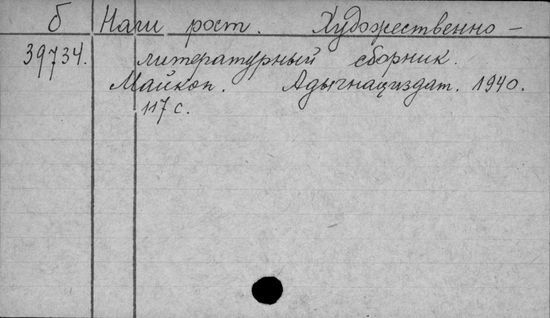 б Наш рост. Художественно-
39734. литературный сборник.
Майкоп. Адыгнациздат. 1940.
117 с.